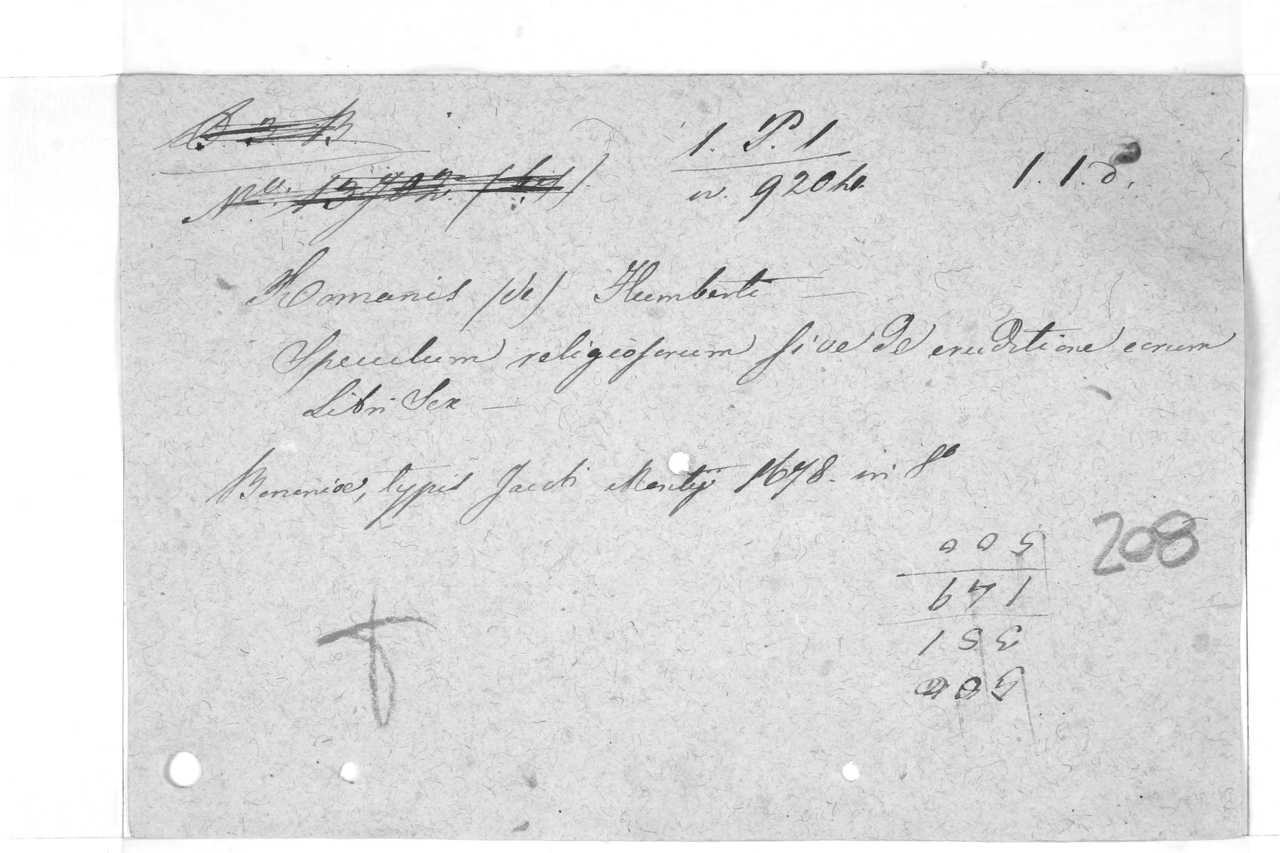 D. 3. B.
1. P. 1
1. 1. d.
No.
w. 920 ho
Romanis /de/ Humberti —
Speculum religiosorum sive De eruditione eorum
Libri Sex —
Bononiæ, typis Jacobi Montij 1678. in 8°
208